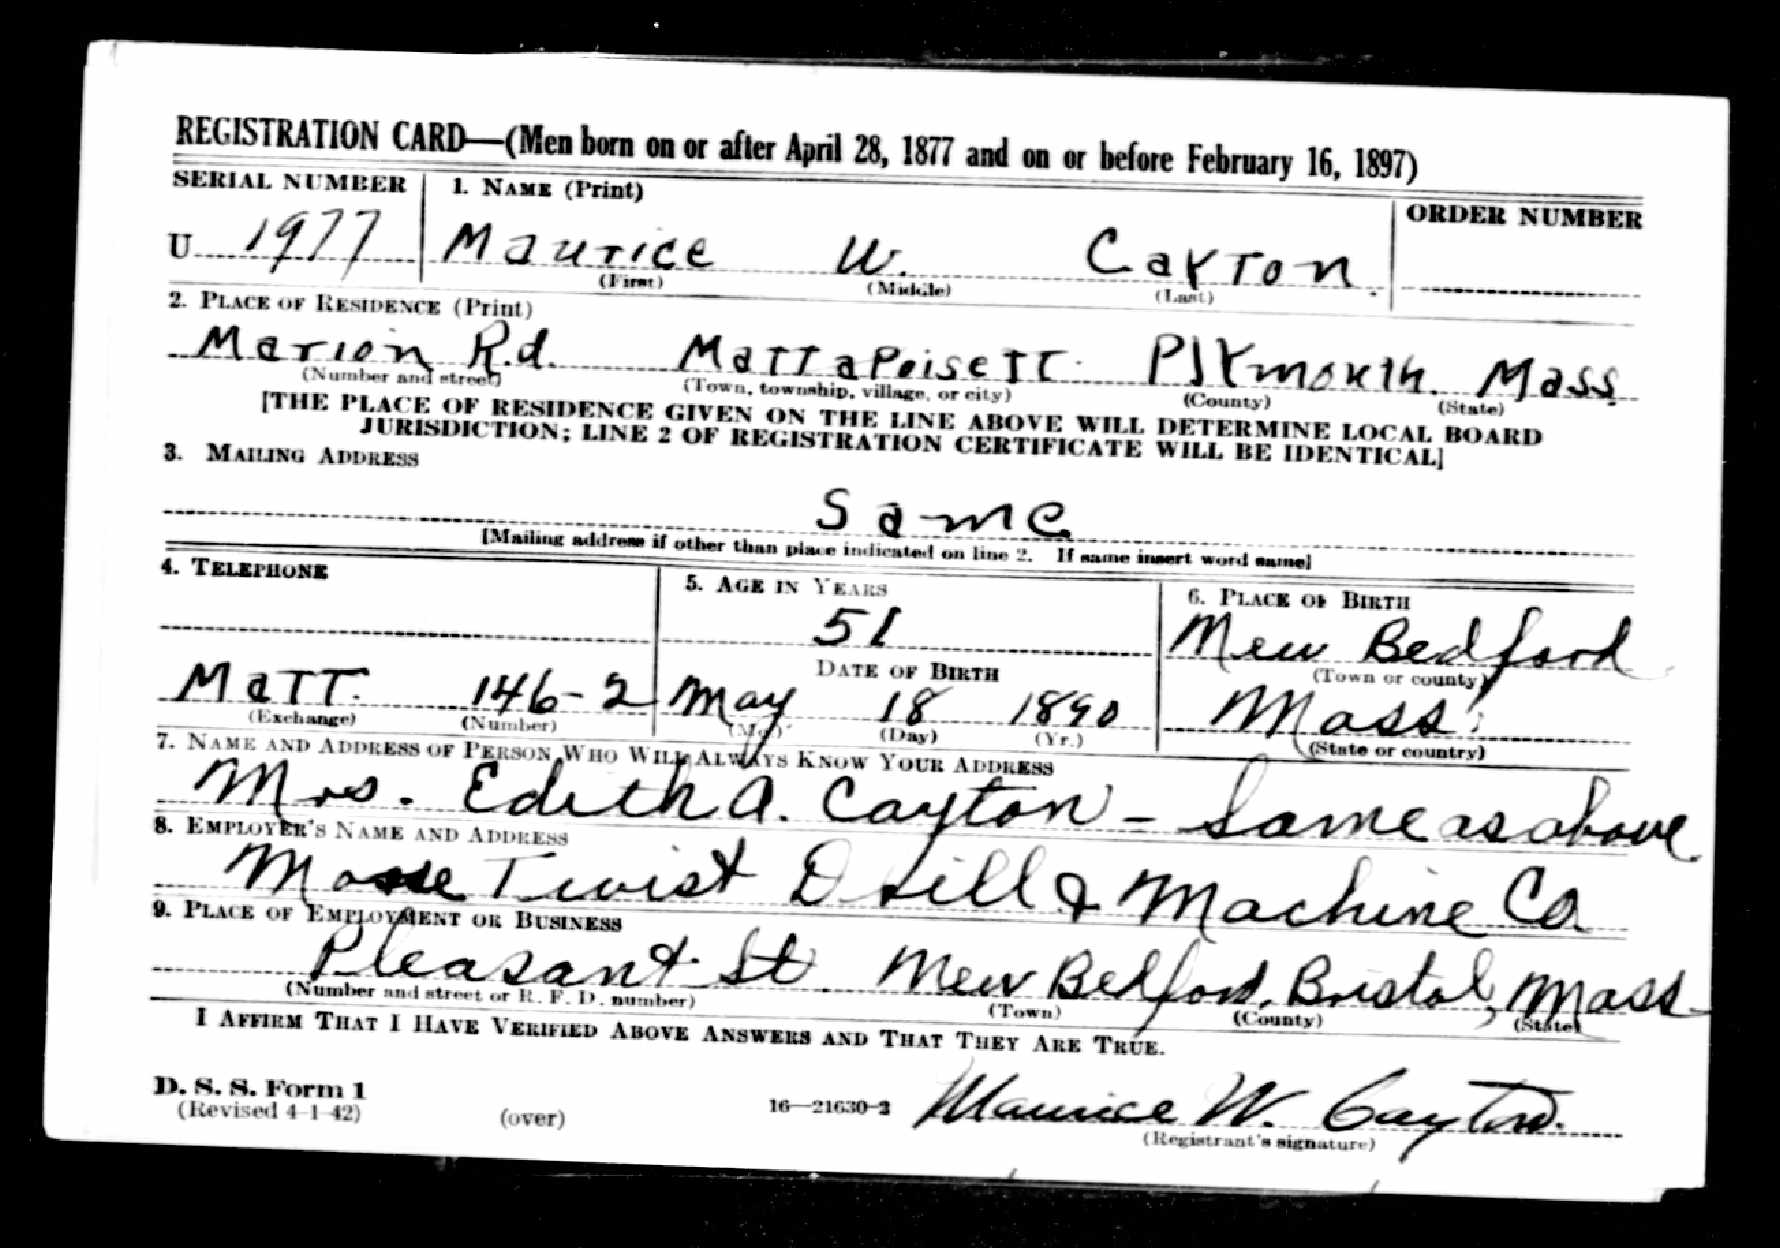 REGISTRATION CARD—(Men born on or after April 28, 1877 and on or before February 16, 1897)
SERIAL NUMBER
1. NAME (Print)
ORDER NUMBER
U 1977
Maurice W. Cayton.
(First) (Middle) (Last)
2. PLACE OF RESIDENCE (Print)
Marion Rd. Mattapoisett. Plymouth. Mass.
(Number and street) (Town, township, village, or city) (County) (State)
[THE PLACE OF RESIDENCE GIVEN ON THE LINE ABOVE WILL DETERMINE LOCAL BOARD
JURISDICTION; LINE 2 OF REGISTRATION CERTIFICATE WILL BE IDENTICAL]
3. MAILING ADDRESS
Same
[Mailing address if other than place indicated on line 2. If same insert word same]
4. TELEPHONE
5. AGE IN YEARS
6. PLACE OF BIRTH
51
New Bedford
DATE OF BIRTH
(Town or county)
Matt. 146-2
May 18 1890
Mass.
(Exchange) (Number)
(Mo.) (Day) (Yr.)
(State or country)
7. NAME AND ADDRESS OF PERSON WHO WILL ALWAYS KNOW YOUR ADDRESS
Mrs. Edith A. Cayton – Same as above
8. EMPLOYER'S NAME AND ADDRESS
Morse Twist Drill & Machine Co
9. PLACE OF EMPLOYMENT OR BUSINESS
Pleasant St. New Bedford, Bristol, Mass-
(Number and street or R. F. D. number) (Town) (County) (State)
I AFFIRM THAT I HAVE VERIFIED ABOVE ANSWERS AND THAT THEY ARE TRUE.
D. S. S. Form 1
(Revised 4-1-42) (over) 16—21630-2 Maurice W. Cayton.
(Registrant's signature)